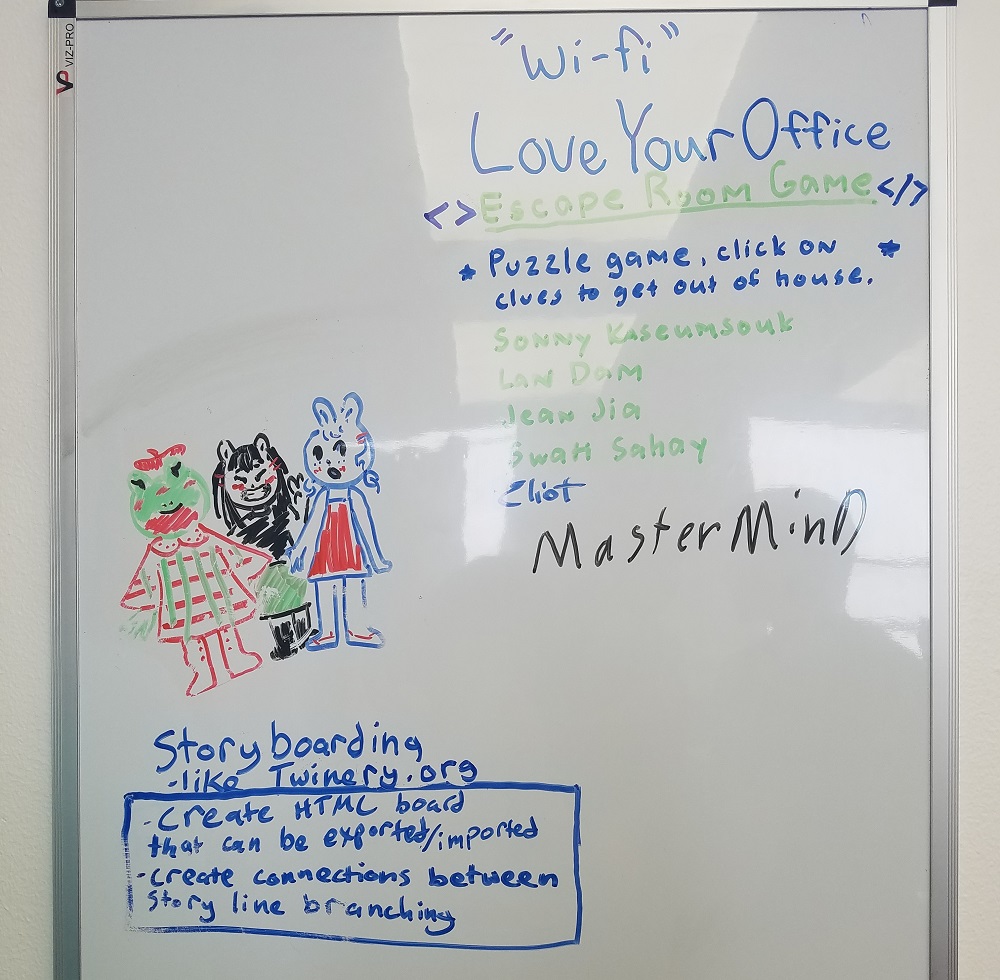 VIZ-PRO
"Wi-fi"
Love Your Office
<> Escape Room Game </>
* Puzzle game, click on *
clues to get out of house.
Sonny Kaseumsouk
Lan Dam
Jean Jia
Swati Sahay
Eliot
MasterMinD
Story boarding
-like Twinery.org
-create HTML board
that can be exported/imported
-create connections between
story line branching